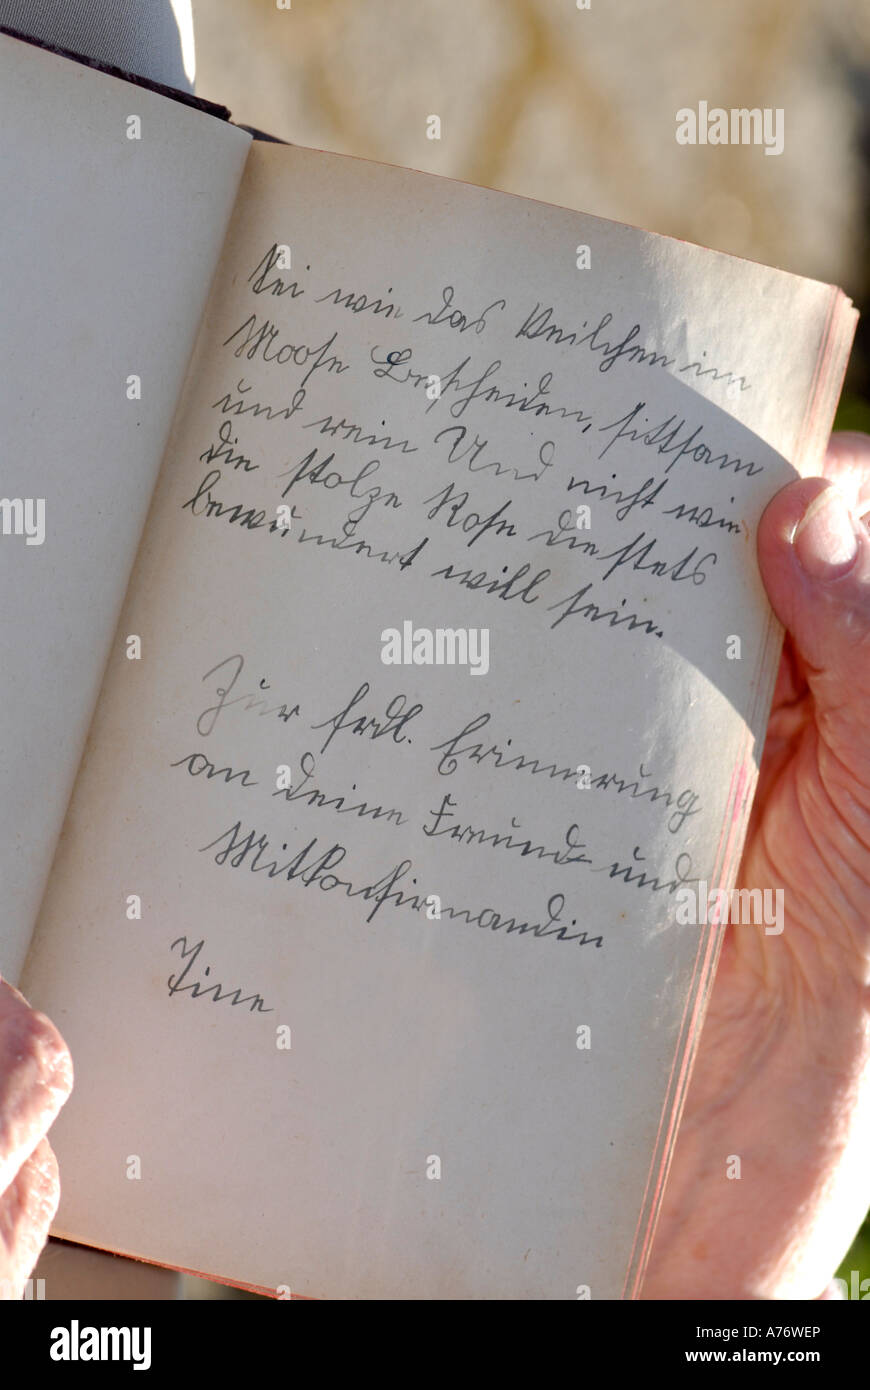 Sei wie das Veilchen im
Moose Bescheiden, sittsam
und rein Und nicht wie
die stolze Rose die stets
bewundert will sein.
Zur frdl. Erinnerung
an deine Freund- und
Mitkonfirmandin
Tine
alamy
alamy
alamy
alamy
alamy
A76WEP
www.alamy.com